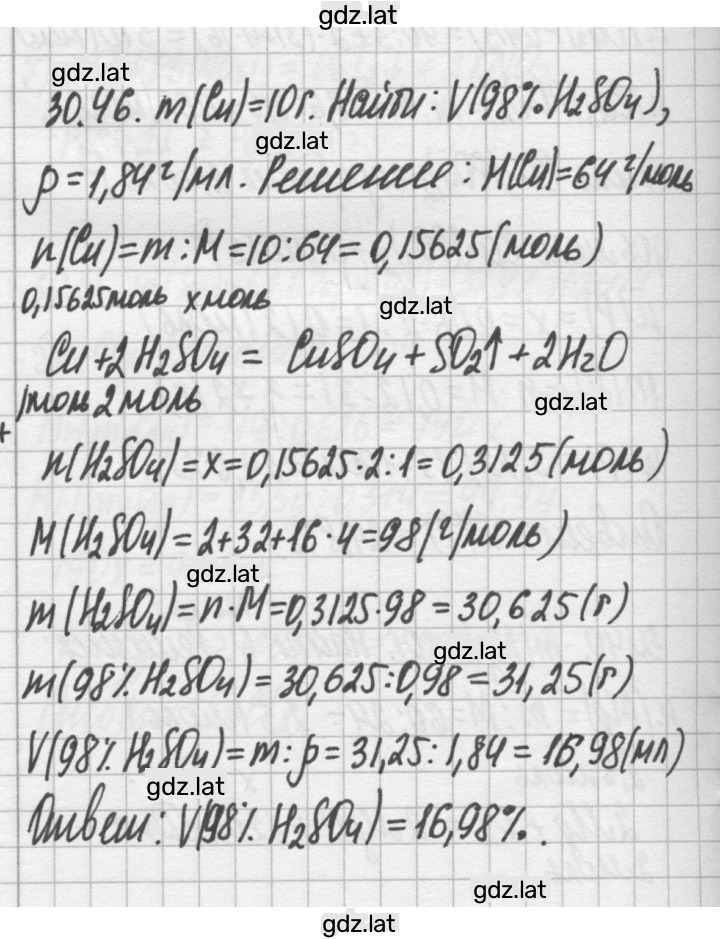 gdz.lat
gdz.lat
30.46. m(Cu)=10г. Найти: V(98% H₂SO₄),
gdz.lat
ρ=1,84 г/мл. Решение: M(Cu)=64 г/моль
n(Cu)=m:M=10:64=0,15625(моль)
0,15625моль x моль
gdz.lat
Cu+2H₂SO₄ = CuSO₄+SO₂↑+2H₂O
1моль 2моль
gdz.lat
n(H₂SO₄)=x=0,15625·2:1=0,3125(моль)
M(H₂SO₄)=2+32+16·4=98(г/моль)
gdz.lat
m(H₂SO₄)=n·M=0,3125·98=30,625(г)
gdz.lat
m(98% H₂SO₄)=30,625:0,98=31,25(г)
V(98% H₂SO₄)=m:ρ=31,25:1,84=16,98(мл)
gdz.lat
Ответ: V(98% H₂SO₄)=16,98%.
gdz.lat
gdz.lat